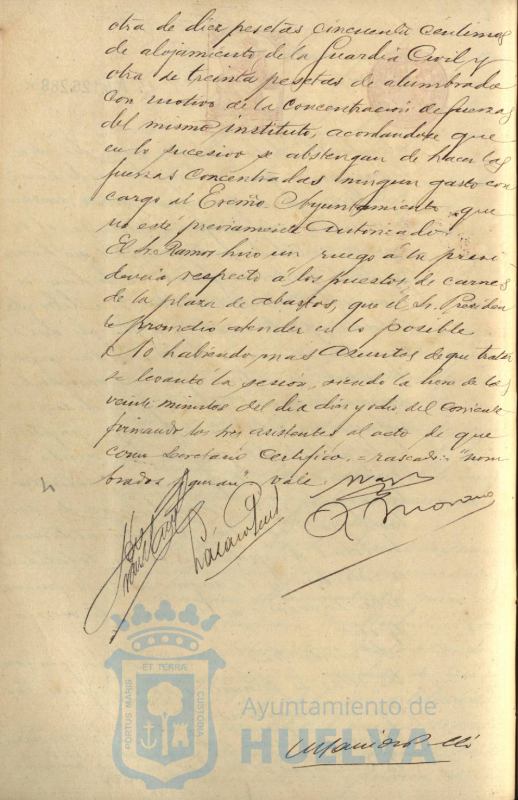 otra de diez pesetas cincuenta céntimos
de alojamiento de la Guardia Civil y
otra de treinta pesetas de alumbrado
con motivo de la concentración de fuerzas
del mismo instituto, acordándose que
en lo sucesivo se abstengan de hacer las
fuerzas concentradas ningun gasto con
cargo al Excmo Ayuntamiento que
no esté previamente autorizado.
El Sr. Ramos hizo un ruego á la presi
dencia respecto á los puestos de carnes
de la plaza de abastos, que el Sr. Presiden
te prometió atender en lo posible.
No habiendo mas asuntos de que tratar
se levantó la sesión, siendo la hora de las
veinte minutos del dia diez y ocho del corriente
firmando los Sres asistentes al acto de que
como Secretario certifico. = rascado: "nom
brados figuran" vale.
Moreno
ET TERRÆ
PORTUS MARIS
CUSTODIA
Ayuntamiento de
HUELVA